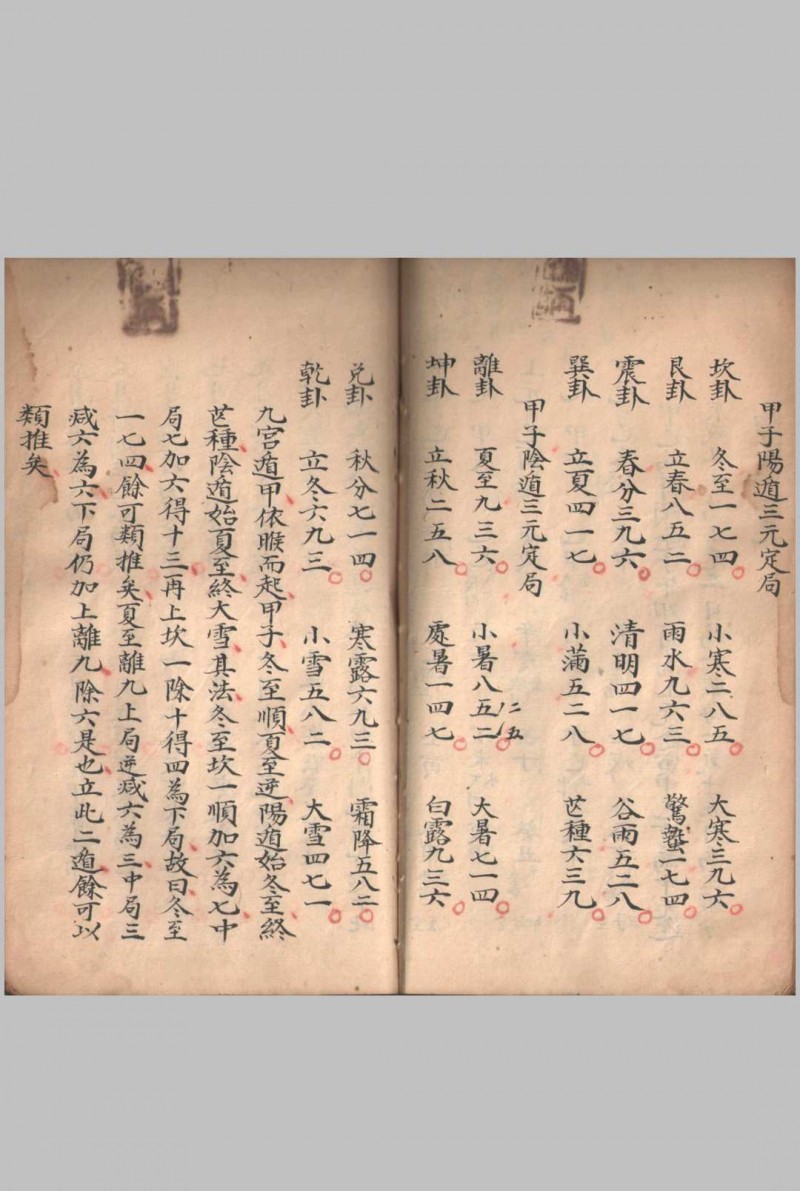 甲子陽遁三元定局
坎卦 冬至一七四 小寒二八五 大寒三九六
艮卦 立春八五二 雨水九六三 驚蟄一七四
震卦 春分三九六 清明四一七 谷雨五二八
巽卦 立夏四一七 小滿五二八 芒種六三九
甲子陰遁三元定局
離卦 夏至九三六 小暑八五二 大暑七一四
二五
坤卦 立秋二五八 處暑一四七 白露九三六
兌卦 秋分七一四 寒露六九三 霜降五八二
乾卦 立冬六九三 小雪五八二 大雪四七一
九宮遁甲依睺而起甲子冬至順夏至逆陽遁始冬至終
芒種陰遁始夏至終大雪其法冬至坎一順加六為七中
局七加六得十三再上坎一除十得四為下局故曰冬至
一七四餘可類推矣夏至離九上局逆减六為三中局三
减六為六下局仍加上離九除六是也立此二遁餘可以
類推矣